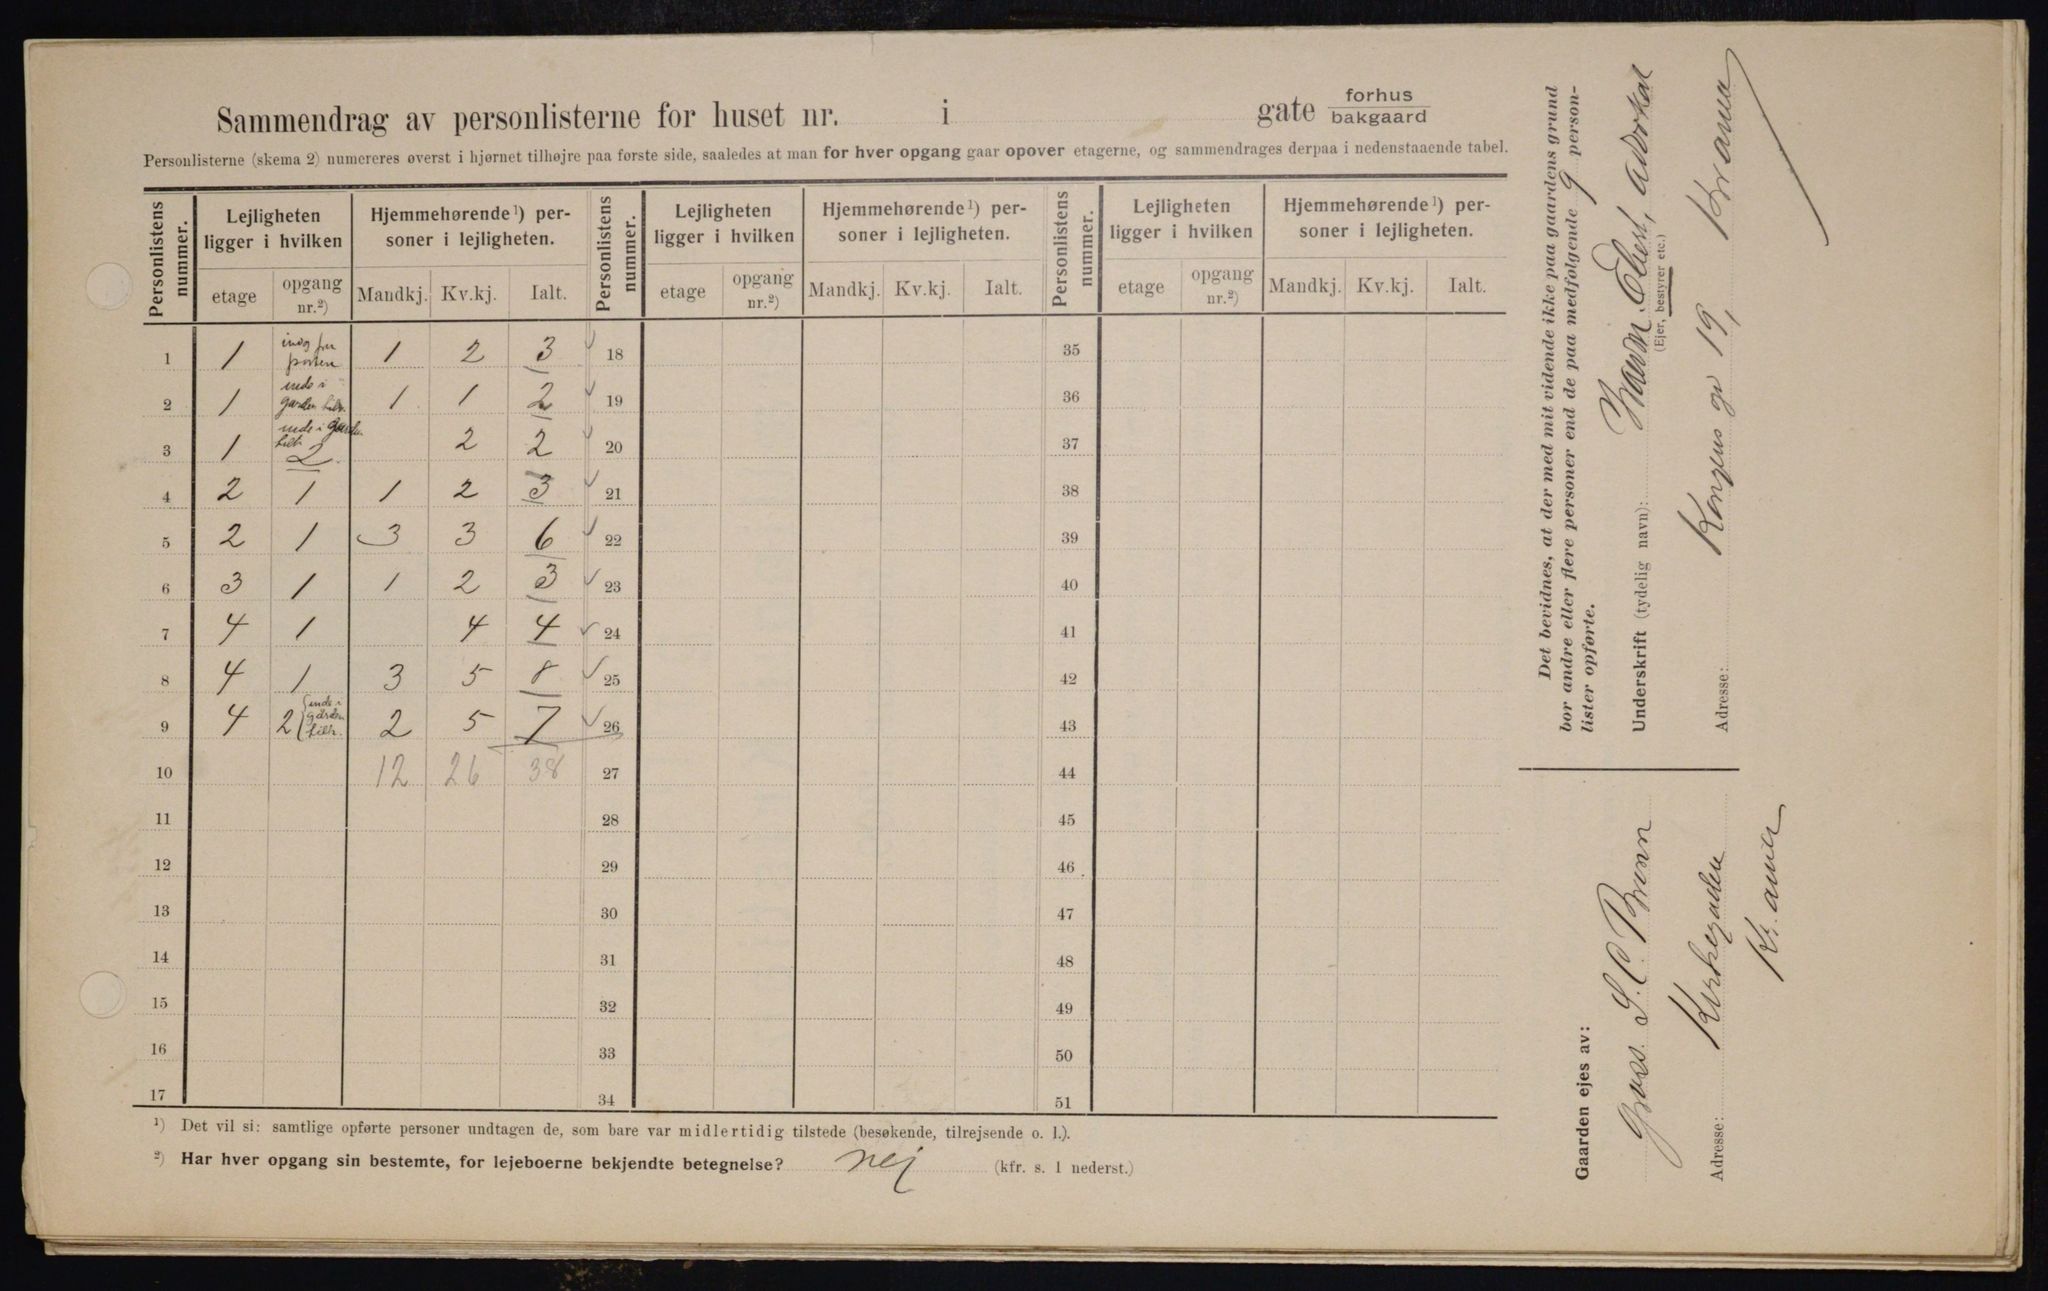 Sammendrag av personlisterne for huset nr. i gate forhus bakgaard
Personlisterne (skema 2) numereres øverst i hjørnet tilhøjre paa første side, saaledes at man for hver opgang gaar opover etagerne, og sammendrages derpaa i nedenstaaende tabel.
Personlistens nummer. Lejligheten ligger i hvilken Hjemmehørende¹) personer i lejligheten. Personlistens nummer. Lejligheten ligger i hvilken Hjemmehørende¹) personer i lejligheten. Personlistens nummer. Lejligheten ligger i hvilken Hjemmehørende¹) personer i lejligheten.
etage opgang nr.²) Mandkj. Kv.kj. Ialt. etage opgang nr.²) Mandkj. Kv.kj. Ialt. etage opgang nr.²) Mandkj. Kv.kj. Ialt.
1 1 indg fra porten 1 2 3 18 35
2 1 inde i garden 1 1 2 19 36
3 1 inde i garden 2 2 2 20 37
4 2 1 1 2 3 21 38
5 2 1 3 3 6 22 39
6 3 1 1 2 3 23 40
7 4 1 4 4 24 41
8 4 1 3 5 8 25 42
9 4 2 inde i gården 2 5 7 26 43
10 12 26 38 27 44
11 28 45
12 29 46
13 30 47
14 31 48
15 32 49
16 33 50
17 34 51
¹) Det vil si: samtlige opførte personer undtagen de, som bare var midlertidig tilstede (besøkende, tilrejsende o. l.).
²) Har hver opgang sin bestemte, for lejeboerne bekjendte betegnelse? nej (kfr. s. 1 nederst.)
Det bevidnes, at der med mit vidende ikke paa gaardens grund
bor andre eller flere personer end de paa medfølgende 9 person-
lister opførte.
Underskrift (tydelig navn): Ebert, advokat
(Ejer, bestyrer etc.)
Adresse: Kongens gt 19, Krania
Gaarden ejes av:
Gros. S. C. Brunn
Adresse: Kirkegaden
Kr.ania